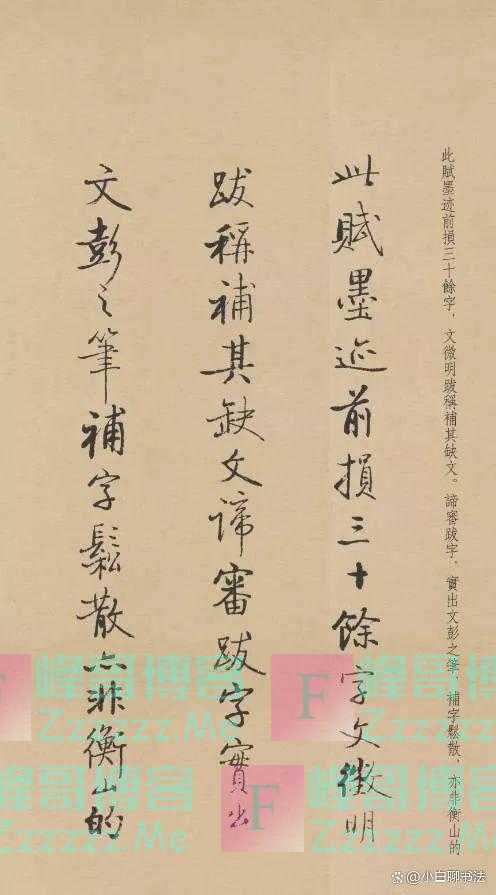 此賦墨迹前損三十餘字，文微明跋稱補其缺文。諦審跋字，實出文彭之筆，補字鬆散，亦非衡山的
此賦墨迹前損三十餘字文徵明
跋稱補其缺文諦審跋字實出
文彭之筆補字鬆散亦非衡山的
峰哥博客
Zzzzzz.Me
F
峰哥博客
Zzzzzz.Me
F
峰哥博客
Zzzzzz.Me
峰哥博客
Zzzzzz.Me
@小白聊书法